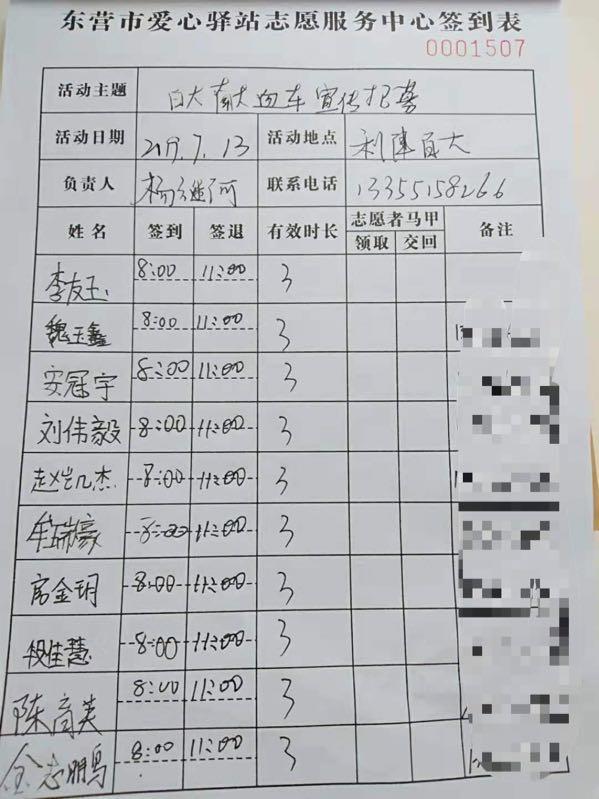 东营市爱心驿站志愿服务中心签到表
0001507
活动主题 百大献血车宣传招募
活动日期 2019.7.13 活动地点 利津百大
负责人 杨继河 联系电话 13355158266
姓名 签到 签退 有效时长 志愿者马甲 备注
领取 交回
李友玉 8:00 11:00 3
魏玉鑫 8:00 11:00 3
安冠宇 8:00 11:00 3
刘伟毅 8:00 11:00 3
赵凯杰 8:00 11:00 3
牟瑞豪 8:00 11:00 3
房金玥 8:00 11:00 3
段佳慧 8:00 11:00 3
陈育英 8:00 11:00 3
金志鹏 8:00 11:00 3